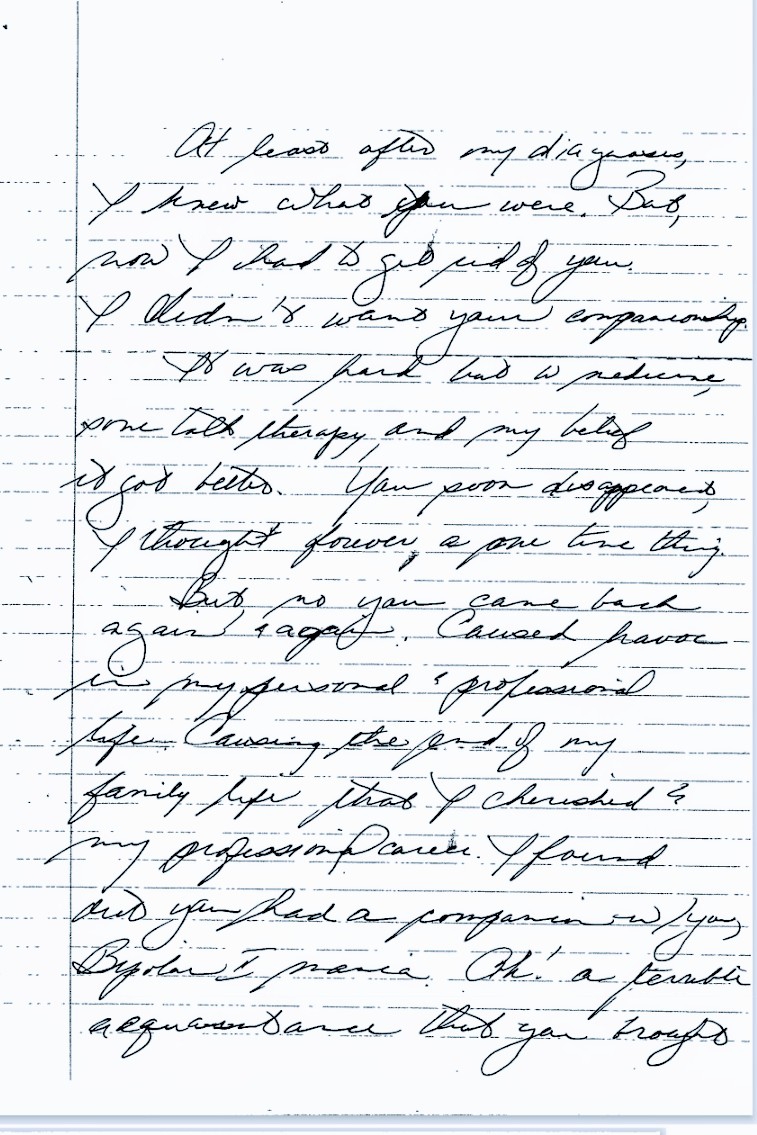 At least after my diagnosis,
I knew what you were. But,
now I had to get rid of you.
I didn't want your companionship.
It was hard but w medicine,
some talk therapy, and my belief
it got better. You soon disappeared,
I thought forever, a one time thing.
But, no you came back
again & again. Caused havoc
in my personal & professional
life. Causing the end of my
family life that I cherished &
my professional career. I found
out you had a companion w/you,
Bipolar I mania. Oh! a terrible
acquaintance that you brought